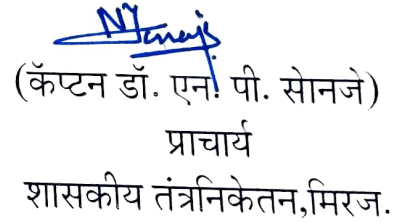 (कॅप्टन डॉ. एन. पी. सोनजे)
प्राचार्य
शासकीय तंत्रनिकेतन,मिरज.